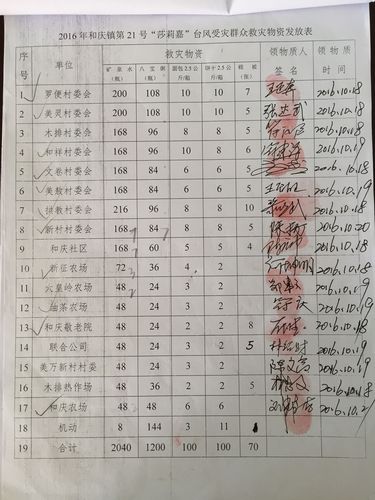 2016年和庆镇第21号“莎莉嘉”台风受灾群众救灾物资发放表
序号 单位 救灾物资 领物质人签名 领物质时间
矿泉水(瓶) 八宝粥(瓶) 面包2.5公斤/箱 饼干2.5公斤/箱 棉被(张)
1 罗便村委会 200 108 10 10 7 2016.10.18
2 美灵村委会 200 108 10 10 5 2016.10.18
3 木排村委会 168 96 8 8 5 2016.10.18
4 和祥村委会 168 96 8 8 5 2016.10.19
5 文卷村委会 168 84 6 6 5 2016.10.18
6 美敖村委会 168 84 6 6 5 2016.10.19
7 拱教村委会 216 96 8 8 10 2016.10.18
8 新村村委会 168 84 8 8 5 2016.10.20
9 和庆社区 168 60 5 5 4 2016.10.18
10 新征农场 72 36 4 2 2016.10.19
11 云皇岭农场 48 24 3 2 2016.10.19
12 油茶农场 48 24 3 2 2016.10.19
13 和庆敬老院 48 24 2 2 8 2016.10.18
14 联合公司 48 24 3 2 5 2016.10.19
15 美万新村村委 48 24 3 2 2016.10.19
16 木排热作场 48 36 2 2 5 2016.10.18
17 和庆农场 48 48 6 6
18 机动 8 144 3 11
19 合计 2040 1200 100 100 70